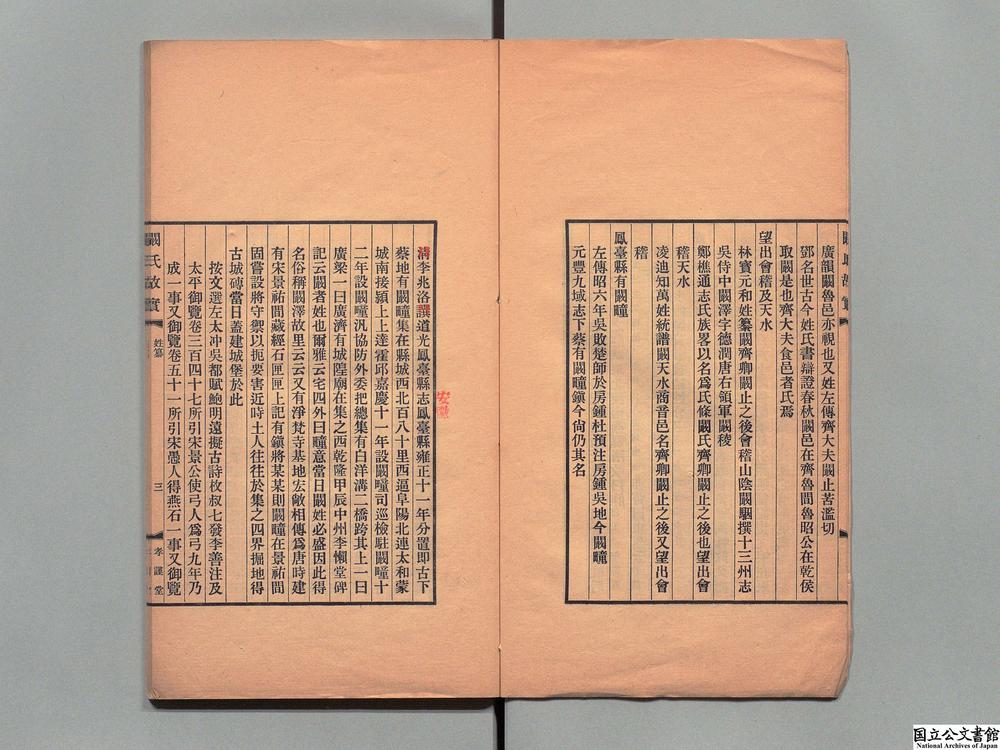 廣韻闞魯邑亦視也又姓左傳齊大夫闞止苦濫切
鄧名世古今姓氏書辯證春秋闞邑在齊魯間魯昭公在乾侯
取闞是也齊大夫食邑者氏焉
望出會稽及天水
林寶元和姓纂闞齊卿闞止之後會稽山陰闞駰撰十三州志
吳侍中闞澤字德潤唐右領軍闞稜
鄭樵通志氏族畧以名爲氏條闞氏齊卿闞止之後也望出會
稽天水
凌迪知萬姓統譜闞天水商晉邑名齊卿闞止之後又望出會
稽
鳳臺縣有闞疃
左傳昭六年吳敗楚師於房鍾杜預注房鍾吳地今闞疃
元豐九域志下蔡有闞疃鎭今尙仍其名
淸李兆洛譔道光鳳臺縣志鳳臺縣雍正十一年分置即古下
蔡地有闞疃集在縣城西北百八十里西逼阜陽北連太和蒙
城南接潁上上達霍邱嘉慶十一年設闞疃司巡檢駐闞疃十
二年設闞疃汛協防外委把總集有白洋溝二橋跨其上一曰
廣梁一曰廣濟有城隍廟在集之西乾隆甲辰中州李懶堂碑
記云闞者姓也爾雅云宅四外曰疃意當日闞姓必盛因此得
名俗稱闞澤故里云云又有淨梵寺基地宏敞相傳爲唐時建
有宋景祐間藏經石匣匣上記有鎭將某某則闞疃在景祐間
固嘗設將守禦以扼要害近時土人往往於集之四界掘地得
古城磚當日蓋建城堡於此
按文選左太冲吳都賦鮑明遠擬古詩枚叔七發李善注及
太平御覽卷三百四十七所引宋景公使弓人爲弓九年乃
成一事又御覽卷五十一所引宋愚人得燕石一事又御覽
闞氏故實
姓纂
三
孝謹堂
国立公文書館
National Archives of Japan